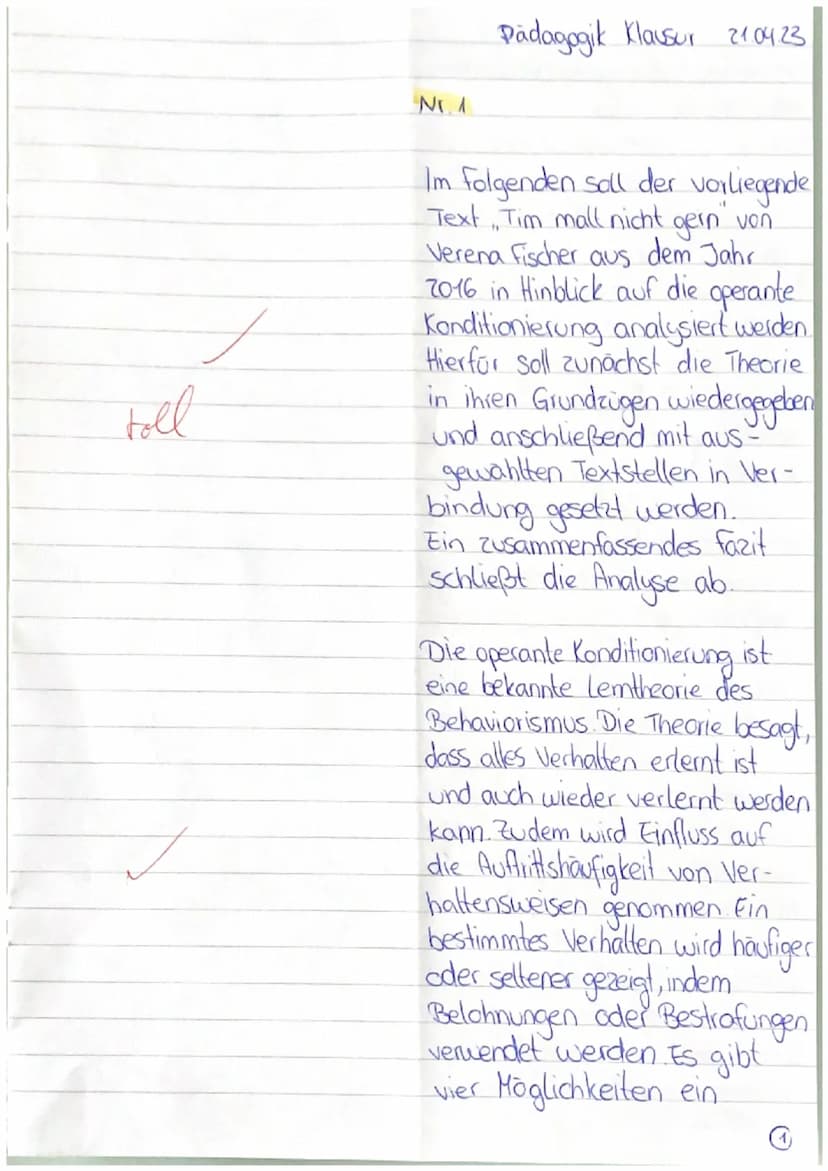 Pädagogik Klausur 21.04.23
Nr. 1
Im Folgenden soll der vorliegende
Text „Tim malt nicht gern" von
Verena Fischer aus dem Jahr
2016 in Hinblick auf die operante
Konditionierung analysiert werden.
Hierfür soll zunächst die Theorie
in ihren Grundzügen wiedergegeben
und anschließend mit aus-
gewählten Textstellen in Ver-
bindung gesetzt werden.
Ein zusammenfassendes Fazit
schließt die Analyse ab.
toll
Die operante Konditionierung ist
eine bekannte Lerntheorie des
Behaviorismus. Die Theorie besagt,
dass alles Verhalten erlernt ist
und auch wieder verlernt werden
kann. Zudem wird Einfluss auf
die Auftrittshäufigkeit von Ver-
haltensweisen genommen. Ein
bestimmtes Verhalten wird häufiger
oder seltener gezeigt, indem
Belohnungen oder Bestrafungen
verwendet werden. Es gibt
vier Möglichkeiten ein
1